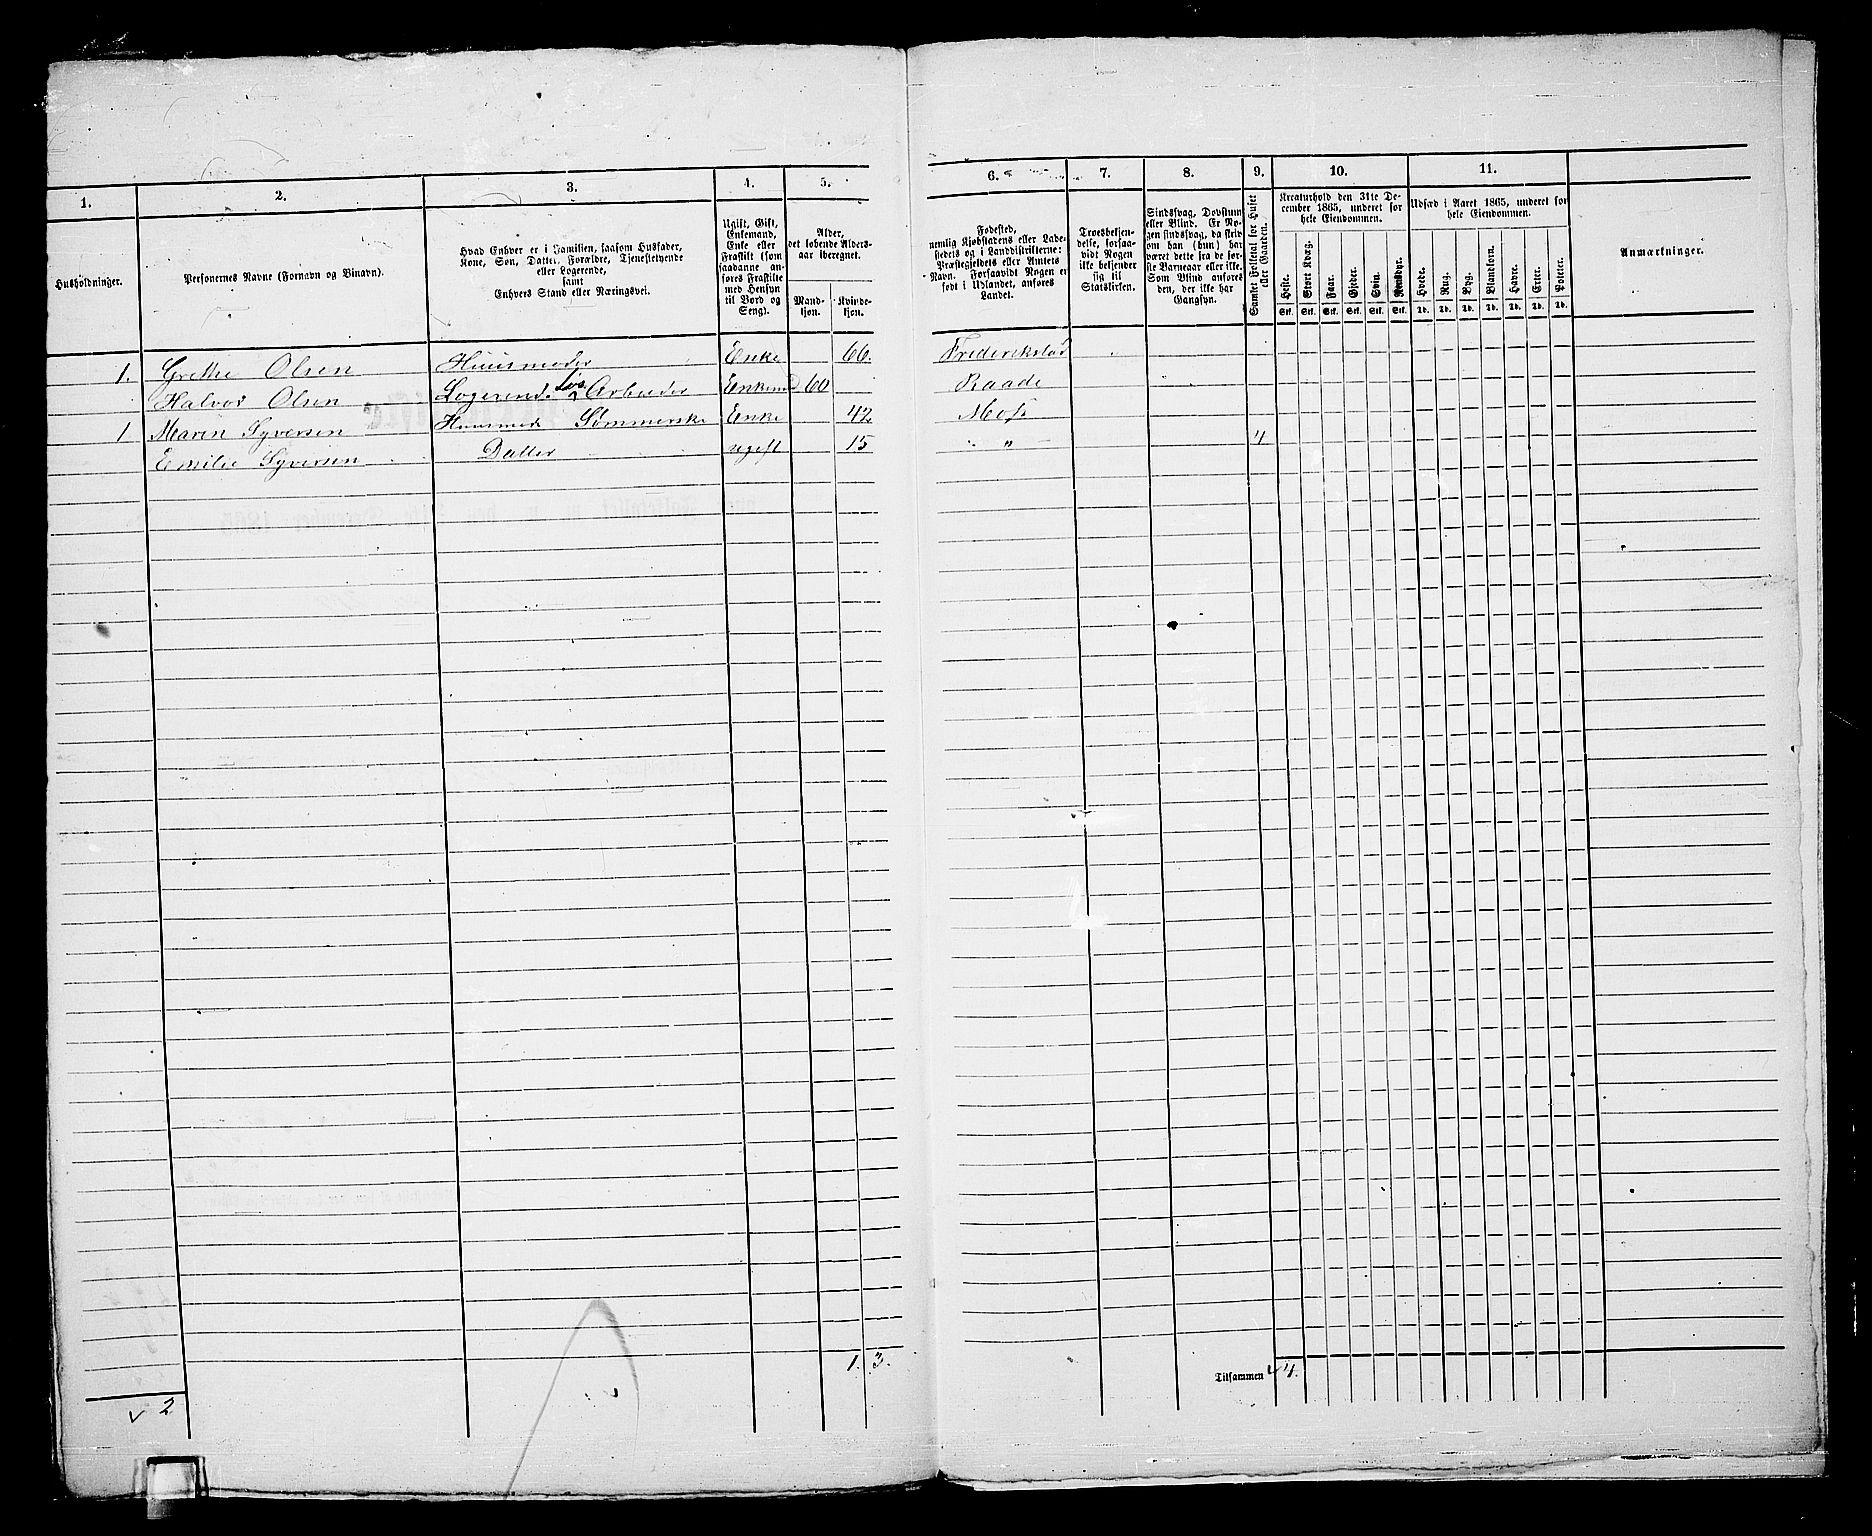 1. 2. 3. 4. 5. 6. 7. 8. 9. 10. 11.
Husholdninger.
Personernes Navne (Fornavn og Binavn).
Hvad Enhver er i Familien, saasom Husfader,
Kone, Søn, Datter, Forældre, Tjenestetyende
eller Logerende,
samt
Enhvers Stand eller Næringsvei.
Ugift, Gift,
Enkemand,
Enke eller
Fraskilt (som
saadanne an-
føres Fraskilte
med Hensyn
til Bord og
Seng).
Alder,
det løbende Alders-
aar iberegnet.
Mand-
kjøn.
Kvinde-
kjøn.
Fødested,
nemlig Kjøbstadens eller Lade-
stedets og i Landdistrikterne:
Præstegjeldets eller Amtets
Navn. Forsaavidt Nogen er
født i Udlandet, anføres
Landet.
Troesbekjen-
delse, forsaa-
vidt Nogen
ikke bekjender
sig til
Statskirken.
Sindssvag, Døvstum
eller Blind. Er No-
gen sindssvag, da skriv
om han (hun) har
været dette fra de før-
ste Barneaar eller ikke.
Som Blind anføres
den, der ikke har
Gangsyn.
Samlet Folketal for Huset
eller Gaarden.
Kreaturhold den 31te De-
cember 1865, underet for
hele Eiendommen.
Heste. Stort Kvæg. Faar. Gjeder. Svin. Rensdyr.
Stk. Stk. Stk. Stk. Stk. Stk.
Udsæd i Aaret 1865, underet for
hele Eiendommen.
Hvede. Rug. Byg. Blandkorn. Havre. Erter. Poteter.
Td. Td. Td. Td. Td. Td. Td.
Anmærkninger.
1. Grethe Olsen Huusmoder Enke 66. Frederikstad
Halvor Olsen Logerende Arbeider Enkem 60 Raade
1 Maren Syversen Huusmod Sømmerske Enke 42 Moss
Emilie Syversen Datter ugift 15 " " 4
1. 3.
Tilsammen 4.
v 2